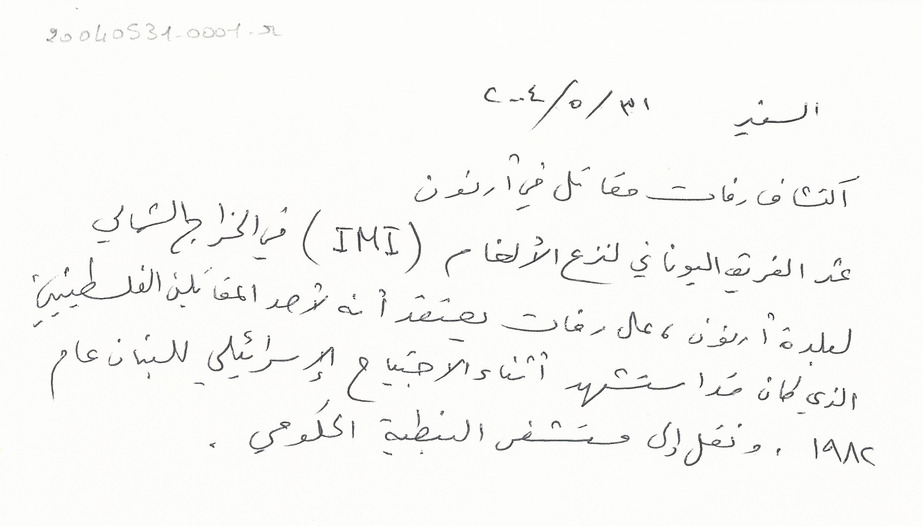 20040531-0001-r
السفير ٣١/٥/٢٠٠٤
اكتشاف رفات مقاتل في أرنون
عثر الفريق اليوناني لنزع الألغام (IMI) في الخراج الشمالي
لبلدة أرنون، على رفات يعتقد أنه لأحد المقاتلين الفلسطينيين
الذي كان قد استشهد أثناء الاجتياح الإسرائيلي للبنان عام
١٩٨٢. ونقل إلى مستشفى النبطية الحكومي.